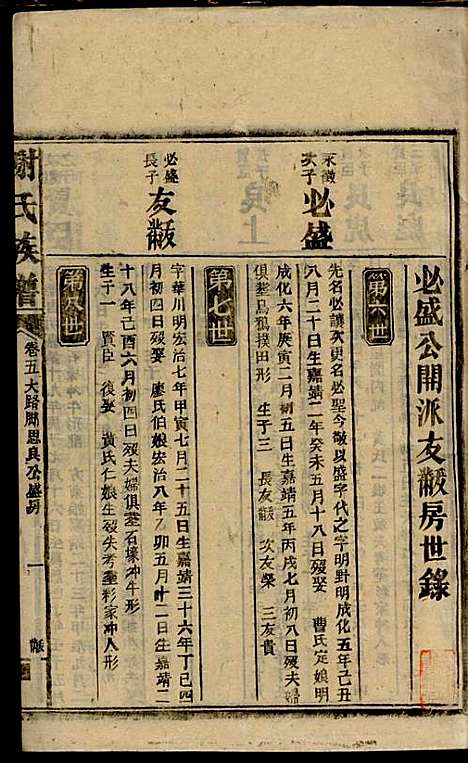 必盛公開派友黻房世錄
永徵
次子
必盛
第六世
先名必讓次更名必聖今敬以盛字代之字明點明成化五年己丑
八月二十日生嘉靖二年癸未五月十八日歿娶 曹氏定娘明
成化六年庚寅二月初五日生嘉靖五年丙戌七月初八日歿夫婦
俱塟烏鴉撲田形 生子三 長友黻 次友榮 三友貴
必盛
長子
友黻
第七世
字華川明宏治七年甲寅七月二十五日生嘉靖三十六年丁巳四
月初四日歿娶 廖氏伯娘宏治八年乙卯五月廿二日生嘉靖二
十八年己酉六月初四日歿夫婦俱塟石壕冲牛形
生子一 賢臣 復娶 黃氏仁娘生歿失考塟彩家冲人形
第八世
謝氏族譜
卷五大路脚思良公盛房
一
黻